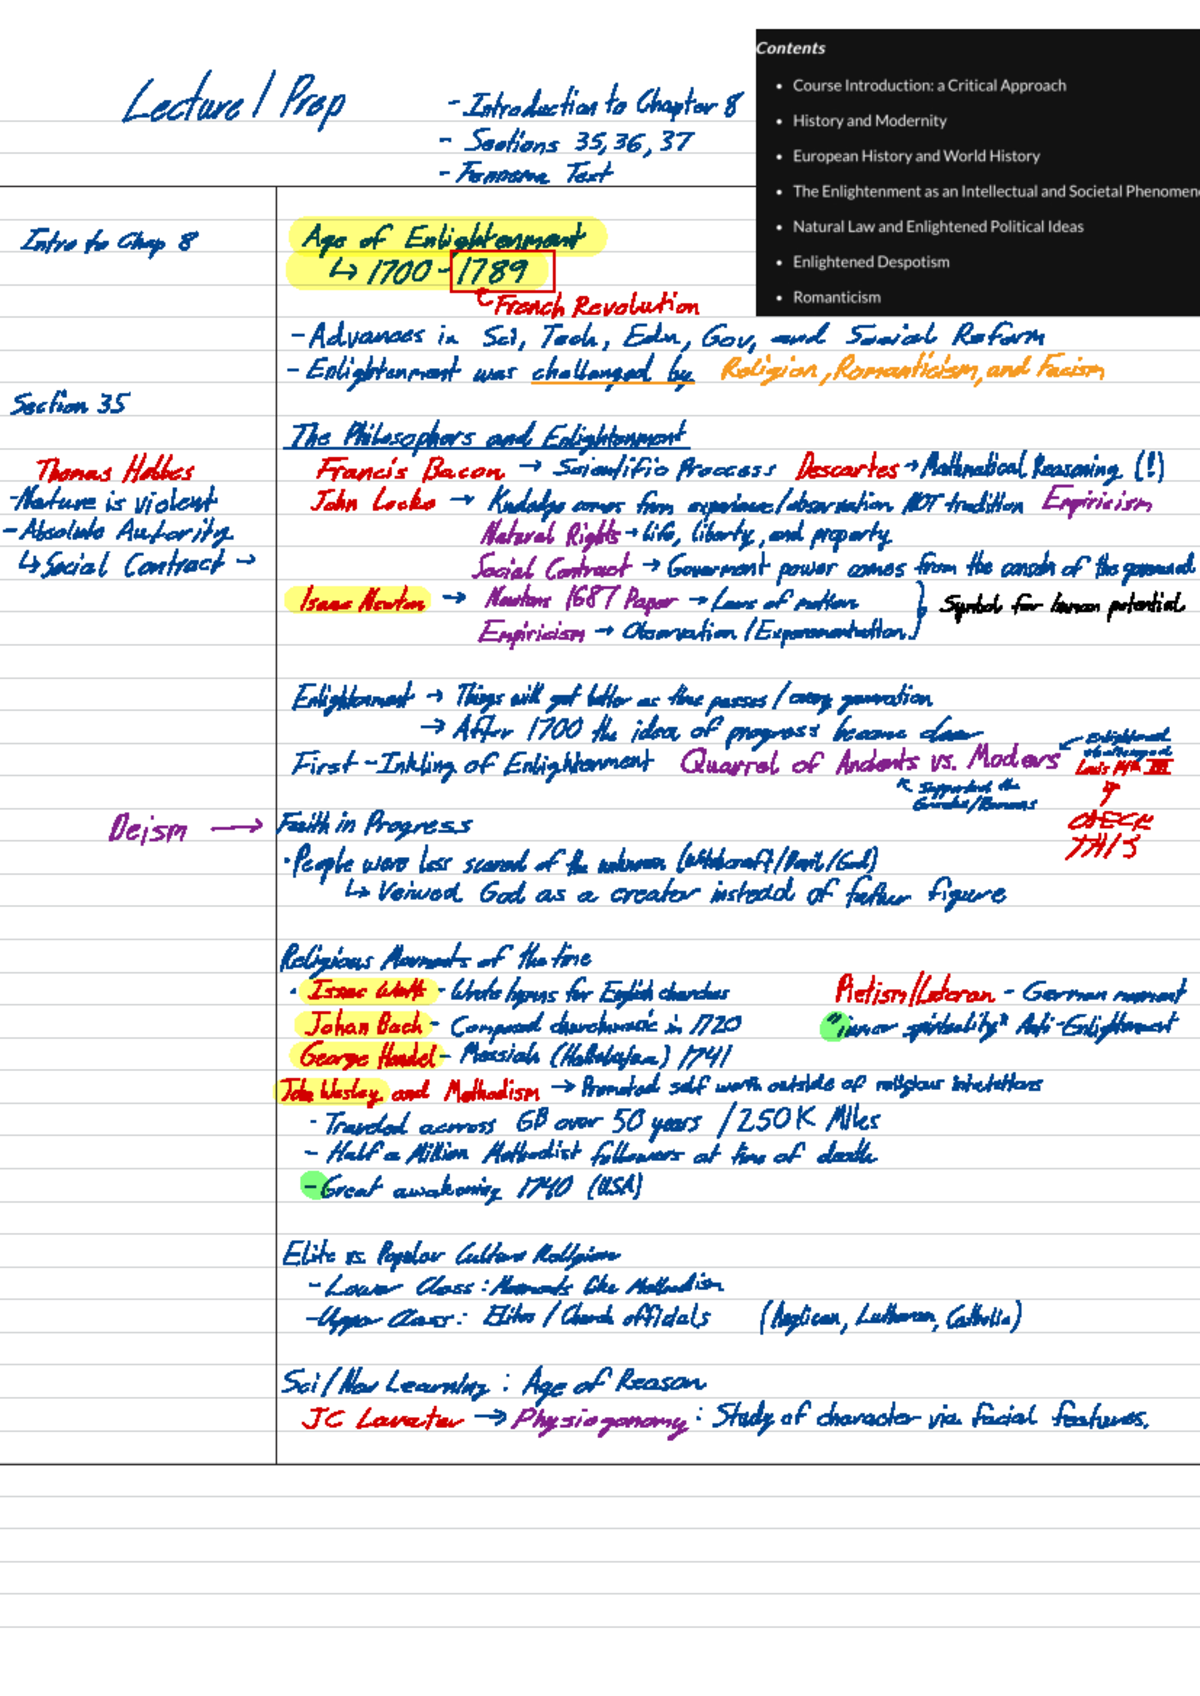 Lecture 1 Prep
- Introduction to Chapter 8
- Sections 35, 36, 37
- Text
Contents
• Course Introduction: a Critical Approach
• History and Modernity
• European History and World History
• The Enlightenment as an Intellectual and Societal Phenomen
• Natural Law and Enlightened Political Ideas
• Enlightened Despotism
• Romanticism
Intro to Chap 8
Age of Enlightenment
↳ 1700 - 1789
French Revolution
- Advances in Sci, Tech, Edu, Gov, and Social Reform
- Enlightenment was challenged by Religion, Romanticism, and Facism
Section 35
The Philosophers and Enlightenment
Thomas Hobbes
- Nature is violent
- Absolute Autority
↳ Social Contract →
Francis Bacon → Scientific Process Descartes → Mathmatical Reasoning (!)
John Locke → Knoladge comes from experience/observation NOT tradition Empiricism
Natural Rights → life, liberty, and property
Social Contract → Goverment power comes from the of the governed
Isaac Newton → Newtons 1687 Paper → Laws of motion
Empiricism → Observation / } Symbol for human potential
Enlightenment → Things will get better as time passes / every generation
→ After 1700 the idea of progress became clear
First-Inkling of Enlightenment Quarrel of Ancients vs. Moderns
Louis 14th III
↖ Supported the
Greeks/Romans
CHECK
THIS
Deism →
Faith in Progress
• People were less scared of the unknown (Witchcraft/Devil/God)
↳ Veiwed God as a creator instead of father figure
Religious Movments of the time
• Issac Watt - Wrote hymns for English churches
Johan Bach - Composed churchmusic in 1720
George Handel - Messiah 1741
Pietism/Luteran - German movment
"inner spirituality" Anti-Enlightenment
John Wesley and Methodism → Promoted self worth outside of religious
- Traveled across GB over 50 years / 250K Miles
- Half a Million Methodist followers at time of death
- Great awakening 1740 (USA)
Elite vs. Popular Culture Religion
- Lower Class: Movments like Methodism
- Upper Class: Elites / Church officials (Anglican, Lutheran, Catholic)
Sci/New Learning: Age of Reason
JC Lavater → Physiogonomy: Study of character via facial features.